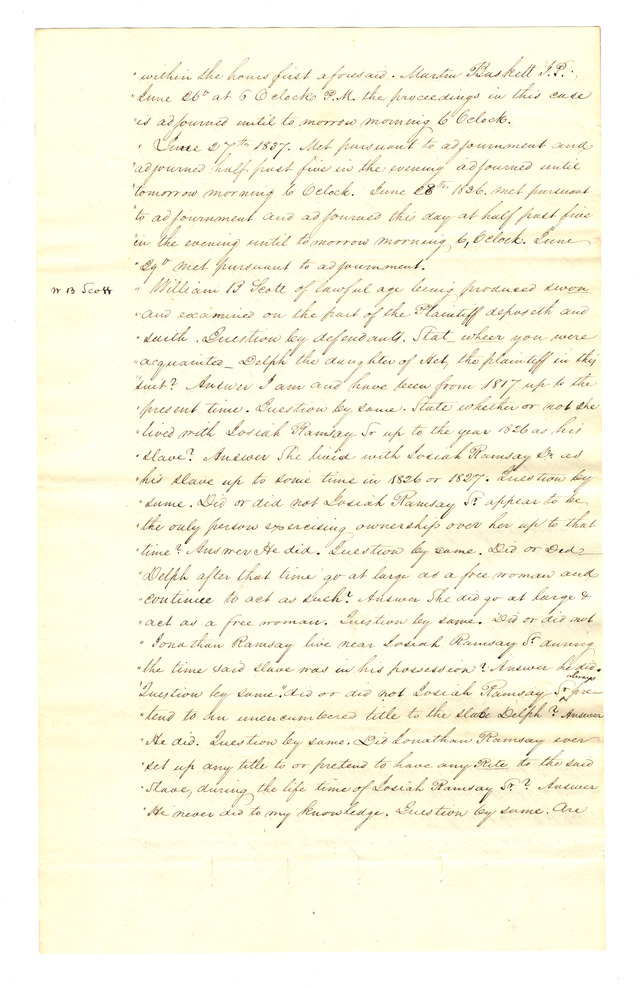 "within the hours first aforesaid. Martin Baskett J.P.
"June 26th at 6 Oclock P.M. the proceedings in this case
"is adjourned until to morrow morning 6 Oclock.
" June 27th 1837. Met pursuant to adjournment and
"adjourned half past five in the evening adjourned until
"tomorrow morning 6 Oclock. June 28th 1836. met pursuant
"to adjournment and adjourned this day at half past five
"in the evening until tomorrow morning 6, Oclock. June
"29th met pursuant to adjournment.
W B Scott
" William B Scott of lawful age being produced sworn
"and examined on the part of the Plaintiff deposeth and
"saith. Question by defendants. Stat_ wheer you were
"acquainted_ Delph the daughter of Act, the plaintiff in this
"suit? Answer I am and have been from 1817 up to the
"present time. Question by same. State whether or not she
"lived with Josiah Ramsay Sr up to the year 1826 as his
"slave? Answer She lived with Josiah Ramsay Sr. as
"his slave up to some time in 1826 or 1827. Question by
"same. Did or did not Josiah Ramsay Sr. appear to be
"the only person exercising ownership over her up to that
"time? Answer He did. Question by same. Did or Did
"Delph after that time go at large as a free woman and
"continue to act as such? Answer She did go at large &
"act as a free woman. Question by same. Did or did not
"Jonathan Ramsay live near Josiah Ramsay Sr. during
"the time said slave was in his possession? Answer he did.
"Question by same. did or did not Josiah Ramsay Sr always pre
"tend to an unencumbered title to the slave Delph? Answer
"He did. Question by same. Did Jonathan Ramsay ever
"set up any title to or pretend to have any Rite to the said
"Slave, during the life time of Josiah Ramsay Sr.? Answer
"He never did to my knowledge. Question by same. Are